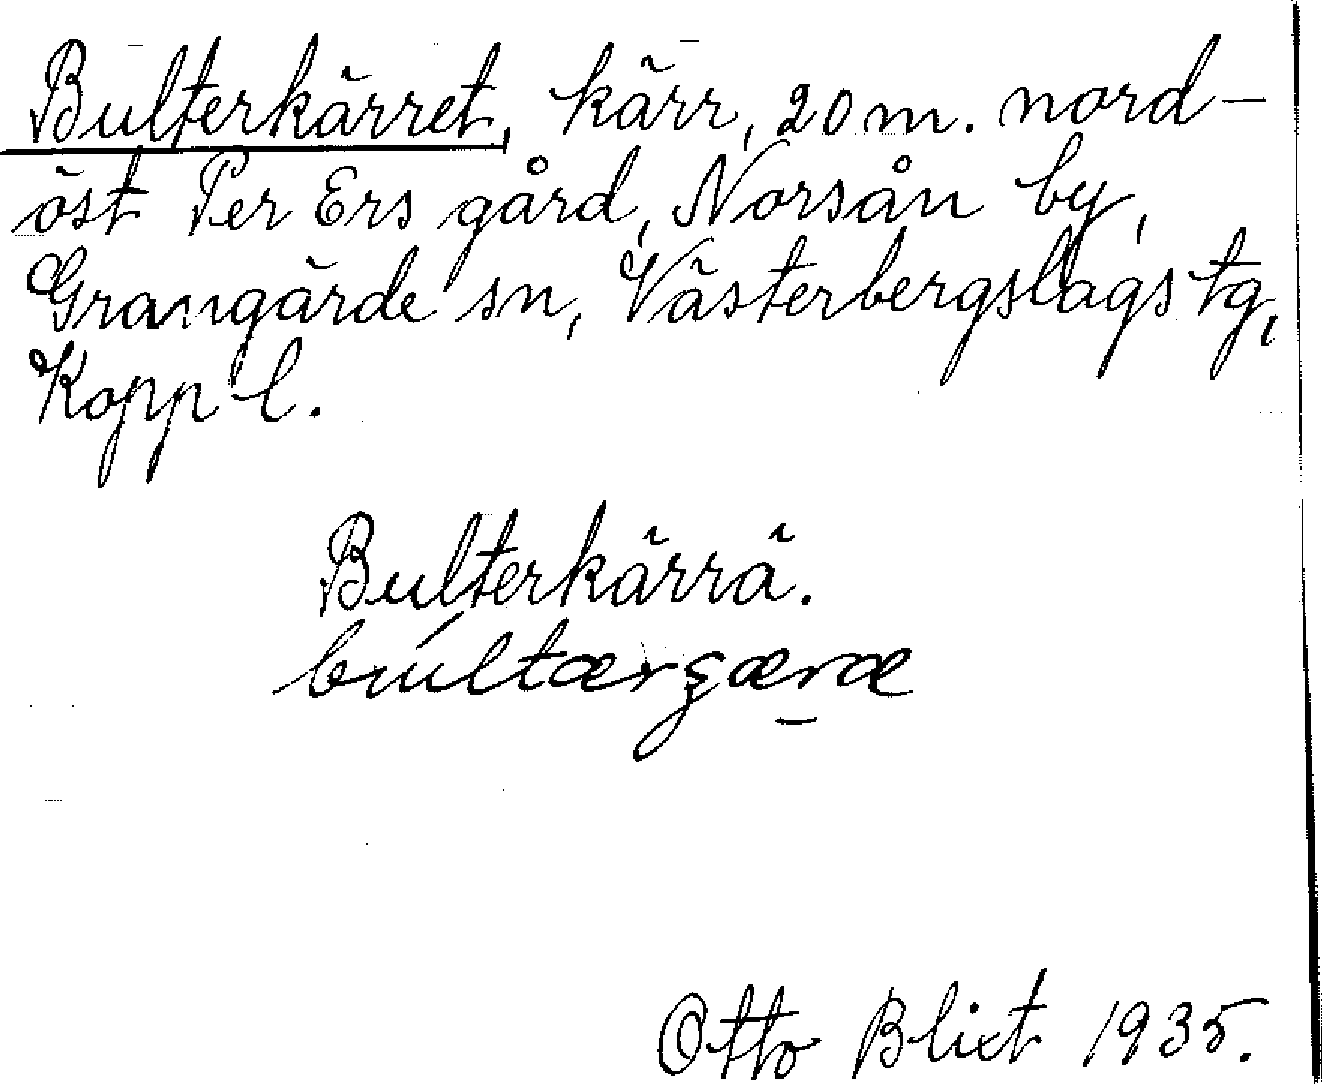 Bulterkärret, kärr, 20 m. nord-
öst Per Ers gård, Norsån by,
Grangärde sn, Västerbergslags tg,
Kopp l.
Bulterkärrä.
Otto Blixt 1935.